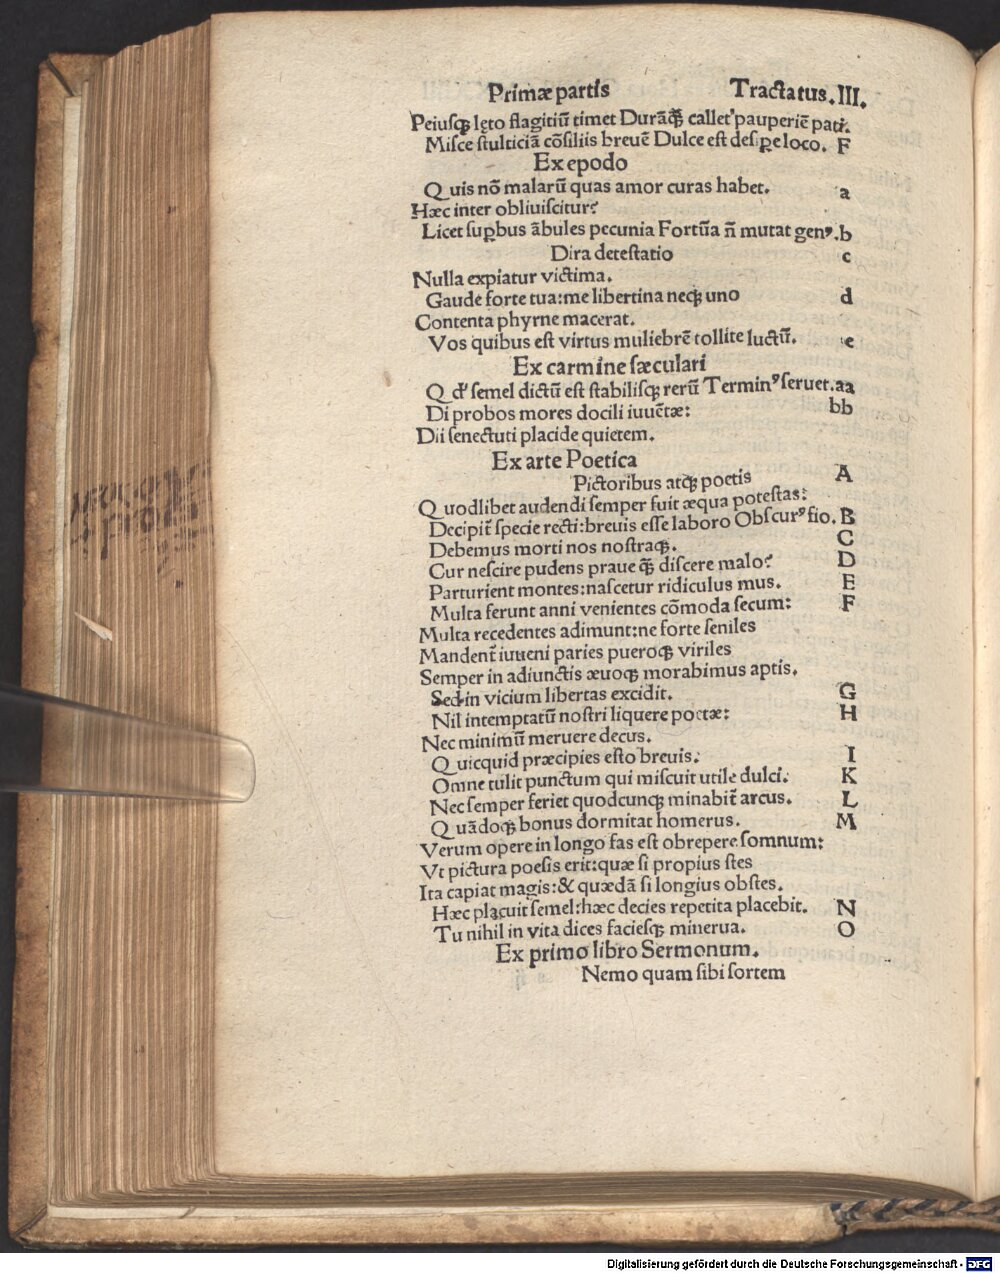 Primæ partis Tractatus.III.
Peiusq̃ lęto flagitiũ timet Durãq̃ callet' pauperiẽ pati.
Misce stulticiã cõsiliis breuẽ Dulce est desiꝑe loco. F
Ex epodo
Quis nõ malarũ quas amor curas habet. a
Hæc inter obliuiscitur?
Licet suꝑbus ãbules pecunia Fortũa ñ mutat genꝰ. b
Dira detestatio c
Nulla expiatur victima.
Gaude forte tua:me libertina neq̃ uno d
Contenta phyrne macerat.
Vos quibus est virtus muliebrẽ tollite luctũ. e
Ex carmine sæculari
Q d' semel dictũ est stabilisq̃ rerũ Terminꝰ seruet. aa
Di probos mores docili iuuẽtæ: bb
Dii senectuti placide quietem.
Ex arte Poetica
Pictoribus atq̃ poetis A
Quodlibet audendi semper fuit æqua potestas:
Decipit̃ specie recti:breuis esse laboro Obscurꝰ fio. B
Debemus morti nos nostraq̃. C
Cur nescire pudens praue q̃ discere malo? D
Parturient montes:nascetur ridiculus mus. E
Multa ferunt anni venientes cõmoda secum: F
Multa recedentes adimunt:ne forte seniles
Mandent̃ iuueni paries pueroq̃ viriles
Semper in adiunctis æuoq̃ morabimus aptis.
Sed in vicium libertas excidit. G
Nil intemptatũ nostri liquere poetæ: H
Nec minimũ meruere decus.
Quicquid præcipies esto breuis. I
Omne tulit punctum qui miscuit utile dulci. K
Nec semper feriet quodcunq̃ minabit̃ arcus. L
Quãdoq̃ bonus dormitat homerus. M
Verum opere in longo fas est obrepere somnum:
Vt pictura poesis erit:quæ si propius stes
Ita capiat magis:& quædã si longius obstes.
Hæc placuit semel:hæc decies repetita placebit. N
Tu nihil in vita dices faciesq̃ minerua. O
Ex primo libro Sermonum.
Nemo quam sibi sortem
Digitalisierung gefördert durch die Deutsche Forschungsgemeinschaft - DFG